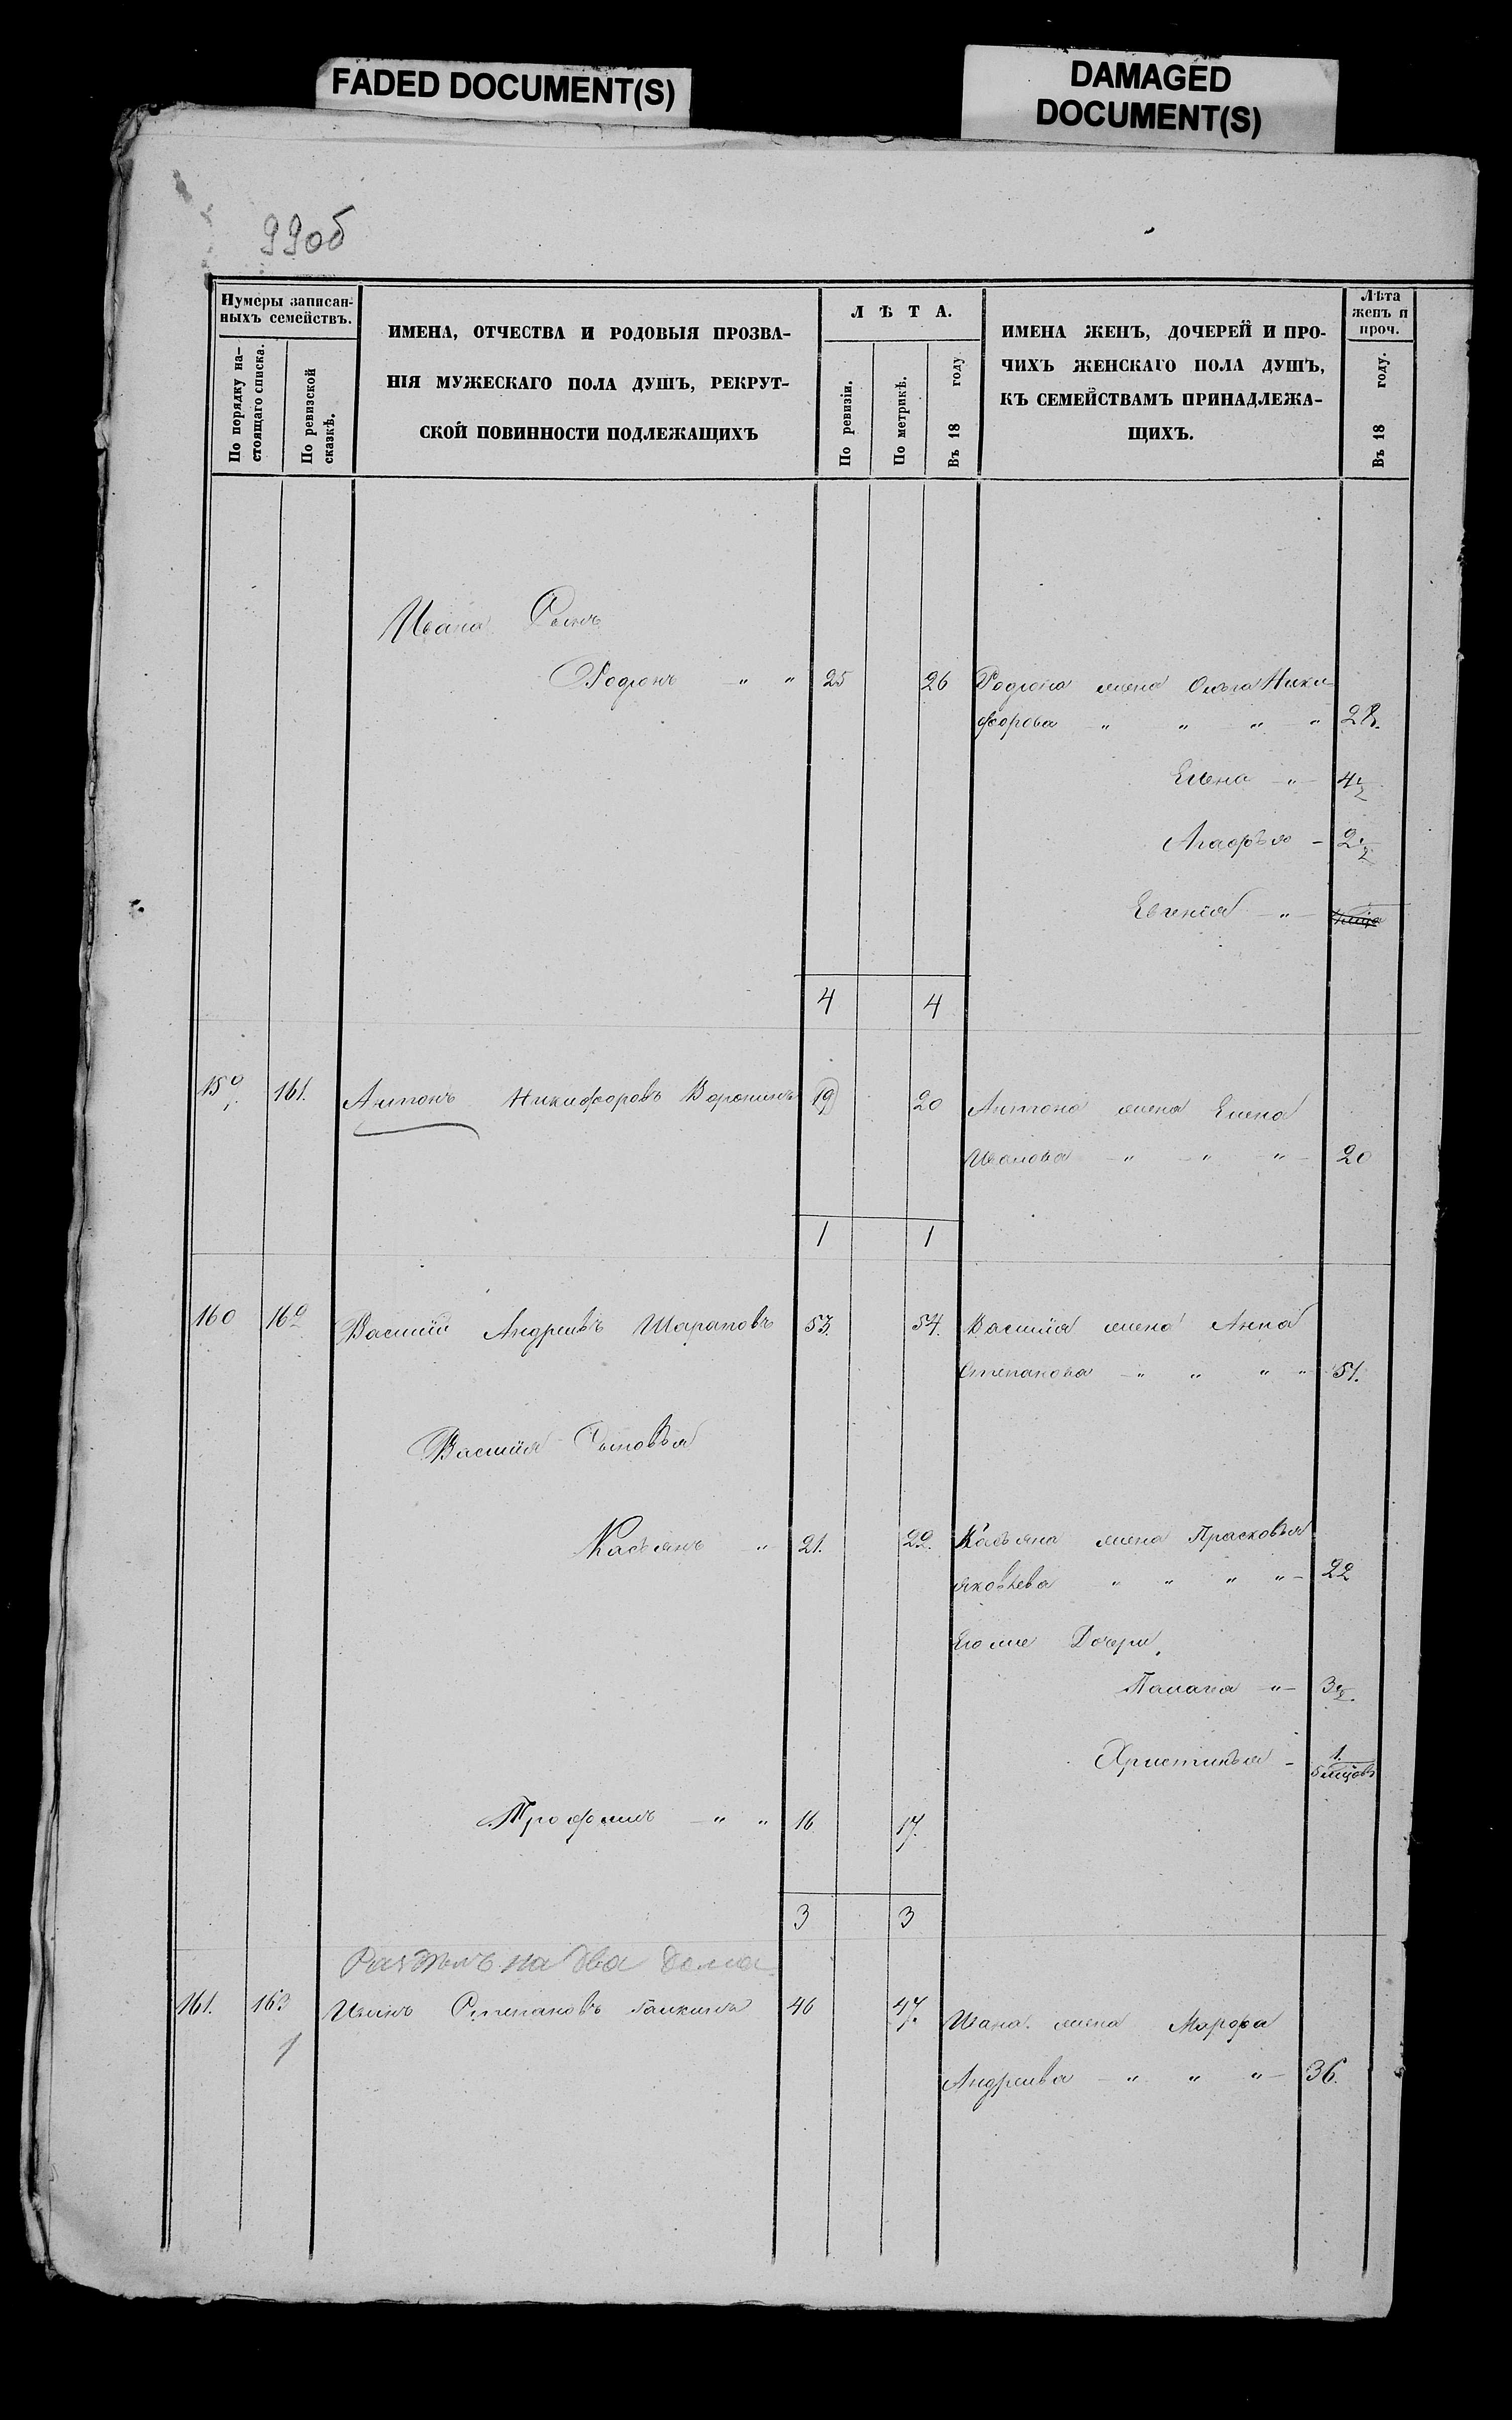 FADED DOCUMENT(S)
DAMAGED
DOCUMENT(S)
99об
Нумеры записан-
ныхъ семействъ.
По порядку на-
стоящаго списка.
По ревизской
сказкѣ.
ИМЕНА, ОТЧЕСТВА И РОДОВЫЯ ПРОЗВА-
НІЯ МУЖЕСКАГО ПОЛА ДУШЪ, РЕКРУТ-
СКОЙ ПОВИННОСТИ ПОДЛЕЖАЩИХЪ
ЛѢТА.
По ревизіи.
По метрикѣ.
Въ 18 году
ИМЕНА ЖЕНЪ, ДОЧЕРЕЙ И ПРО-
ЧИХЪ ЖЕНСКАГО ПОЛА ДУШЪ,
КЪ СЕМЕЙСТВАМЪ ПРИНАДЛЕЖА-
ЩИХЪ.
Лѣта
женъ и
проч.
Въ 18 году.
Ивана Сынъ
Родіонъ " " 25 26 Родіона жена Ольга Ники
форова " " " " 28.
Елена " 4½
Агафья - 2½
Евгенія "
4 4
159. 161. Антонъ Никифоровъ Воронинъ 19 20 Антона жена Елена
Иванова " " " 20
1 1
160 162 Василій Андреевъ Шараповъ 53. 54. Василія жена Анна
Степанова " " " " 51.
Василія Сыновья
Касьянъ " 21. 22. Касьяна жена Прасковья
Яковлева " " " " 22
Его же Дочери
Палагея " 3½.
Христинья - 1.
5 мѣцовъ
Трофимъ " " 16 17.
3 3
Раздѣлъ на два дома
161. 163 Иванъ Степановъ Галкинъ 46 47. Ивана жена Марфа
1
Андреева " " " 36.